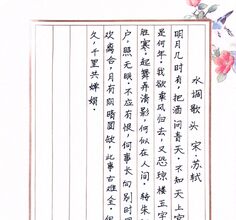 水调歌头 宋·苏轼
明月几时有，把酒问青天。不知天上宫
是何年。我欲乘风归去，又恐琼楼玉宇
胜寒。起舞弄清影，何似在人间。转朱
户，照无眠。不应有恨，何事长向别时
欢离合，月有阴晴圆缺，此事古难全。但
久，千里共婵娟。